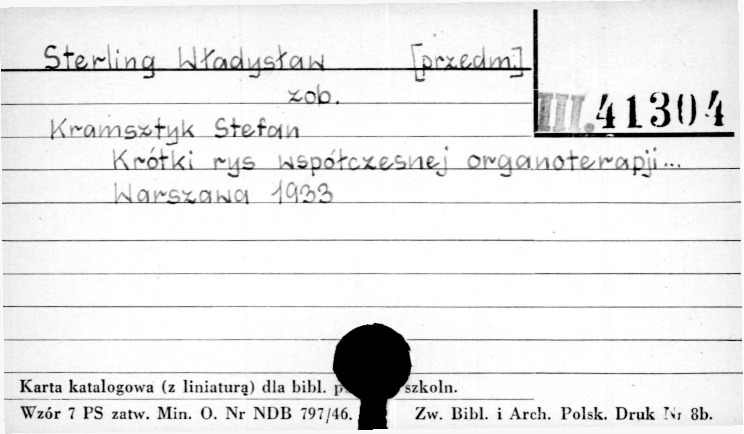 Sterling Władysław [przedm.]
zob.
III. 41304
Kramsztyk Stefan
Krótki rys współczesnej organoterapji...
Warszawa 1933
Karta katalogowa (z liniaturą) dla bibl. szkoln.
Wzór 7 PS zatw. Min. O. Nr NDB 797/46. Zw. Bibl. i Arch. Polsk. Druk Nr 8b.